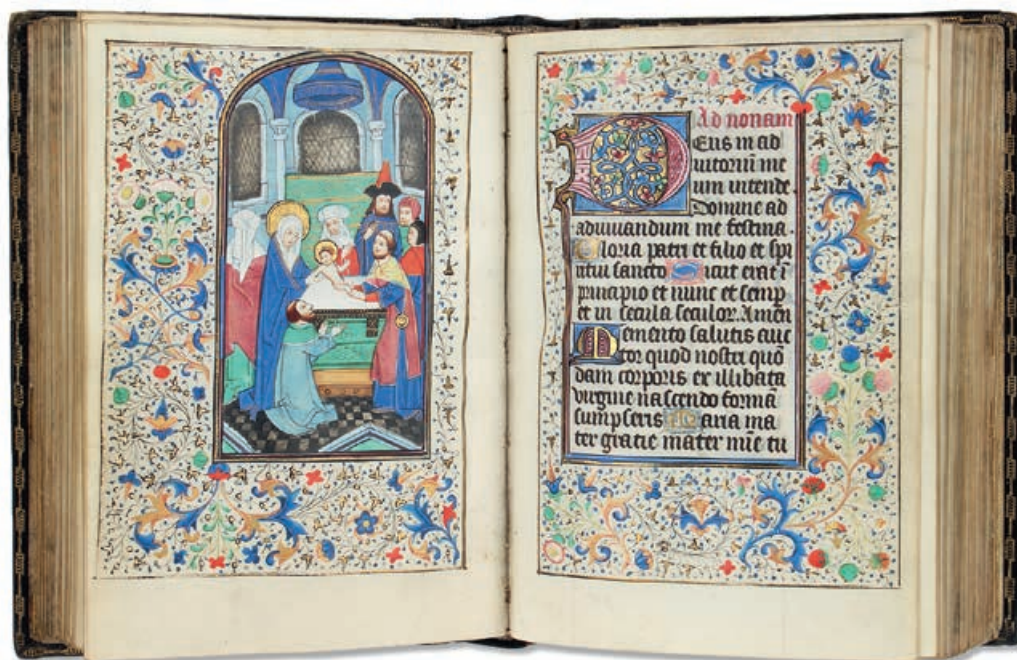 Ad nonam
Deus in ad
iutoriū me
um intende.
Domine ad
adiuuandum me festina.
Gloria patri et filio et spi
ritui sancto Sicut erat ī
principio et nunc et semp
et in secula seculor. Amen
Memento salutis auc
tor quod nostri quō
dam corporis ex illibata
virgine nascendo formā
sumpseris Maria ma
ter gratie mater mīe tu